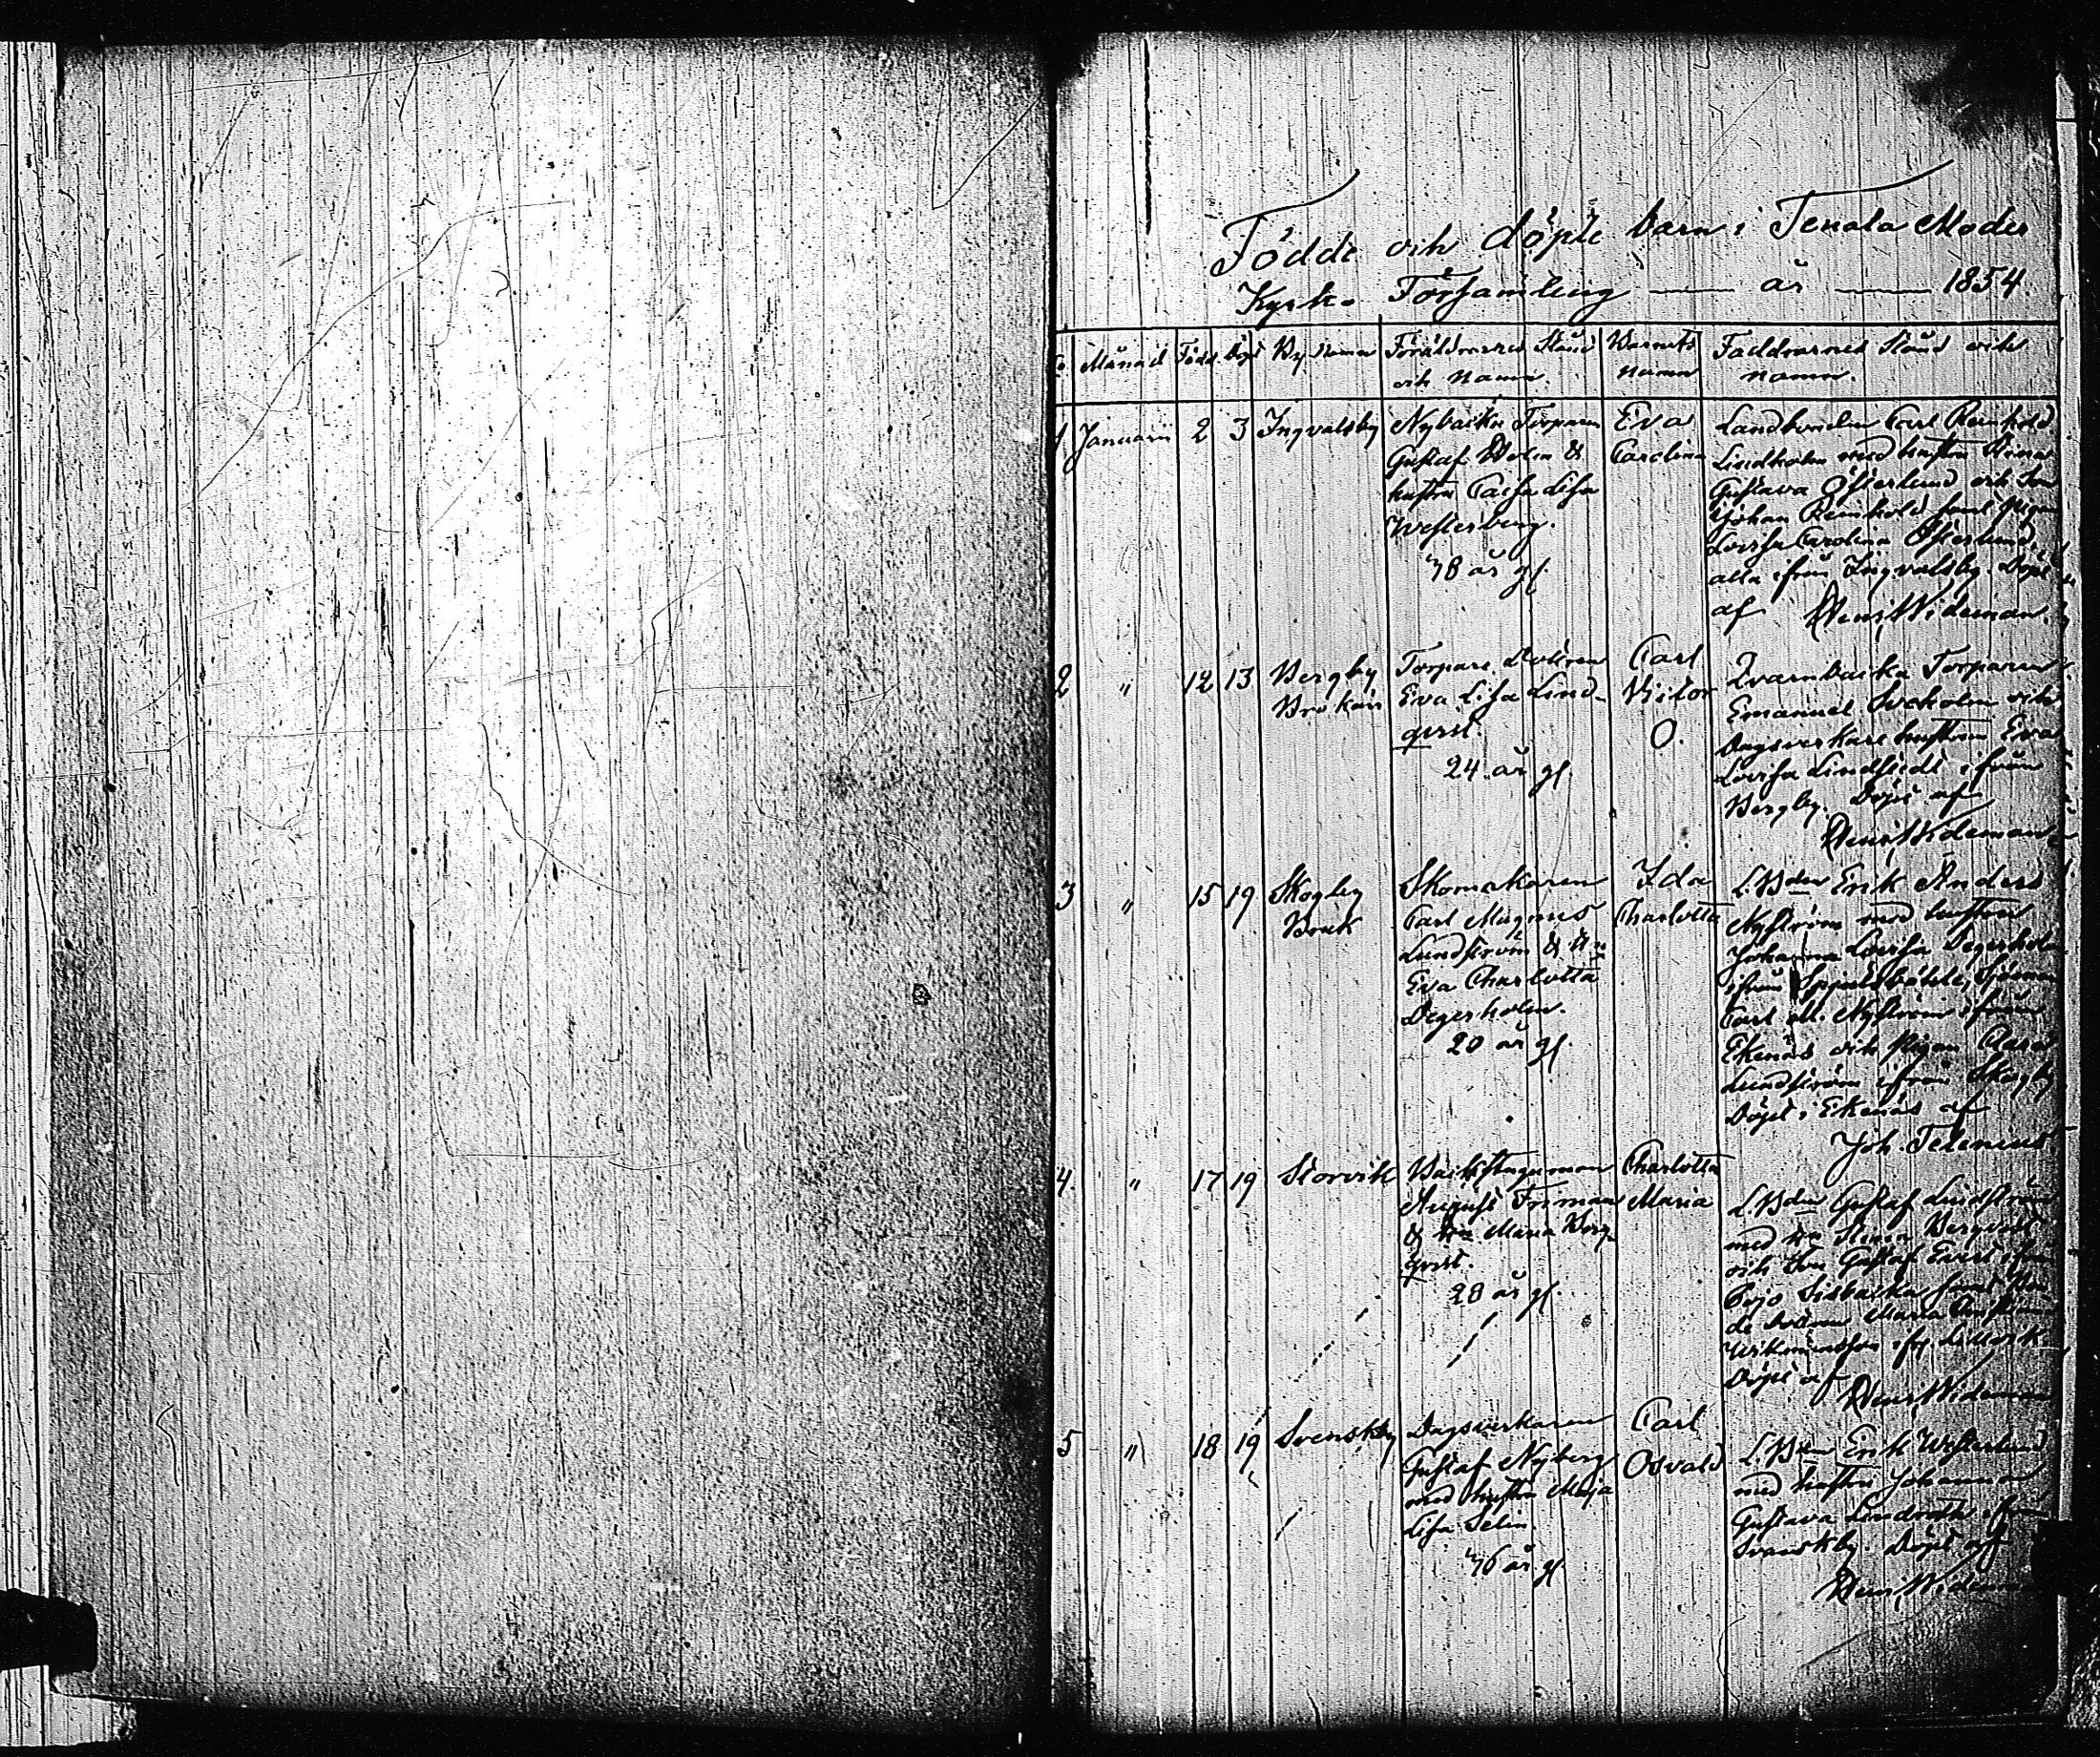 Födde och döpte barn i Tenala Moder
Kyrko Församling — år — 1854
Månad Född Döpt By Namn Föräldrarnes Stånd och Namn. Barnets Namn Faddrarnes Stånd och Namn.
1 Januarii 2 3 Ingvalsby
Nybacka Torparen
Gustaf Wolin &
hustru Cajsa Lisa
Westerberg.
48 år gl.
Eva
Carolina
Landbonden Carl Reinhold
Lindholm med hustru Stina
Gustava Österlund och Son
Johan Reinhold samt Pigan
Lovisa Carolina Österlund,
alla ifrån Ingvalsby. Döpt
af Henr. Wideman.
2 " 12 13 Bergby
Torpare Dottren
Eva Lisa Lind-
qvist.
24 år gl.
Carl
Victor
O.
Qvarnbacka Torparen
Emanuel och
Dagsverkare hustrun Eva
Lovisa Lindstedt ifrån
Bergby. Döpt af
Henr. Wideman
3 " 15 19 Skogby
Bruk
Skomakaren
Carl Magnus
Lundström & H:u
Eva Charlotta
Degerholm.
20 år gl.
Ida
Charlotta
L.B:den Erik Anders
Nyström med hustru
Johanna Lovisa Degerholm
ifrån
Carl M. Nyström ifrån
Ekenäs och Pigan Clara
Lundström ifrån Skogby
Döpt i Ekenäs af
Joh. Telenius
4. " 17 19 Storvik
Backstuguman
August Friman
& H:u Maria Berg-
qvist.
28 år gl.
Charlotta
Maria
L.B:den Gustaf Lindström
med H:u Stina Bergvall
och Son Gustaf Evert ifrån
Pojo samt
Maria
Döpt af
Henr. Wideman
5 " 18 19 Svenskby
Dagsverkaren
Gustaf Nyberg
med hustru Maja
Lisa Selin.
46 år gl
Carl
Osvald
L.B:den Erik Westerlund
med hustru Johanna
Gustava Lindroth ifrån
Svenskby. Döpt af
Henr. Wideman